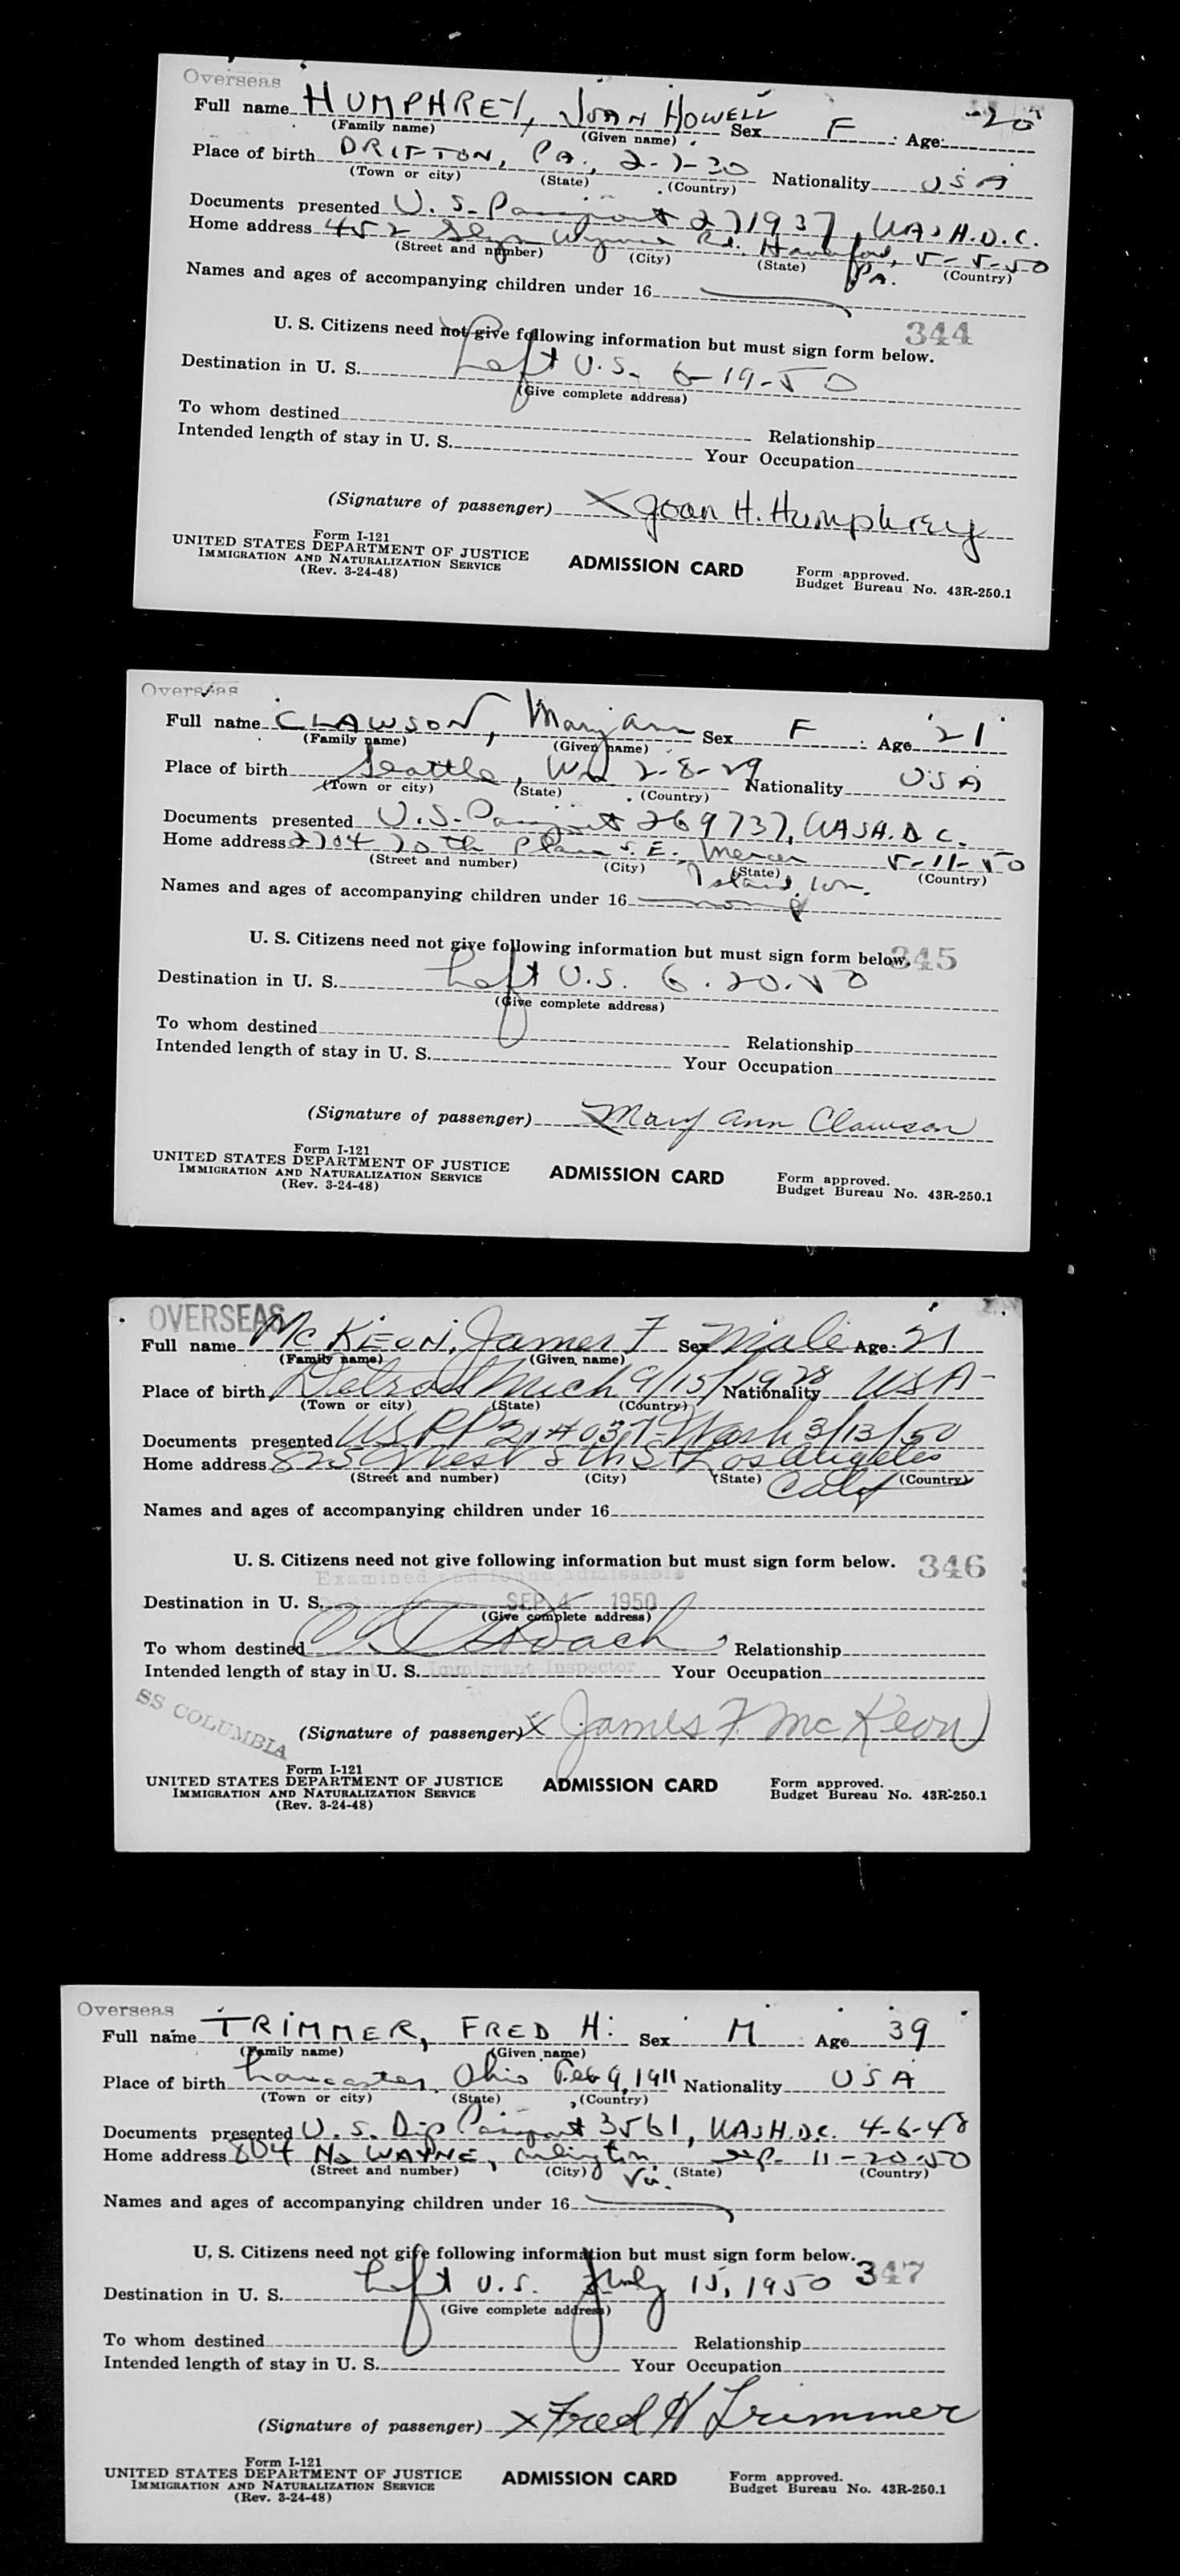 Overseas
Full name HUMPHREY, JOAN HOWELL Sex F Age 20
(Family name) (Given name)
Place of birth DRIFTON, PA., 2-7-30 Nationality USA
(Town or city) (State) (Country)
Documents presented U. S. Passport 271937, WASH.D.C.
Home address 452 Wynne Rd. Haverford, 5-5-50
(Street and number) (City) (State) (Country)
PA.
Names and ages of accompanying children under 16
344
U. S. Citizens need not give following information but must sign form below.
Destination in U. S. Left U.S. 6-19-50
(Give complete address)
To whom destined Relationship
Intended length of stay in U. S. Your Occupation
(Signature of passenger) X Joan H. Humphrey
Form I-121
UNITED STATES DEPARTMENT OF JUSTICE
IMMIGRATION AND NATURALIZATION SERVICE
(Rev. 3-24-48)
ADMISSION CARD
Form approved.
Budget Bureau No. 43R-250.1
Overseas
Full name CLAWSON, Mary Ann Sex F Age 21
(Family name) (Given name)
Place of birth Seattle, Wn 2-8-29 Nationality USA
(Town or city) (State) (Country)
Documents presented U.S. Passport 269737, WASH. D C.
Home address 2704 70th Place S.E., Mercer 5-11-50
(Street and number) (City) (State) (Country)
Island, Wn.
Names and ages of accompanying children under 16 none
U. S. Citizens need not give following information but must sign form below. 345
Destination in U. S. Left U.S. 6.20.50
(Give complete address)
To whom destined Relationship
Intended length of stay in U. S. Your Occupation
(Signature of passenger) X Mary Ann Clawson
Form I-121
UNITED STATES DEPARTMENT OF JUSTICE
IMMIGRATION AND NATURALIZATION SERVICE
(Rev. 3-24-48)
ADMISSION CARD
Form approved.
Budget Bureau No. 43R-250.1
OVERSEAS
Full name McKEON, James F Sex Male Age 21
(Family name) (Given name)
Place of birth Detroit Mich 9/15/1928 Nationality USA
(Town or city) (State) (Country)
Documents presented USPP 214037 Wash 3/13/50
Home address 825 West 8th St Los Angeles
(Street and number) (City) (State) (Country)
Calif
Names and ages of accompanying children under 16
U. S. Citizens need not give following information but must sign form below. 346
Examined and found admissible
Destination in U. S. SEP 4 1950
(Give complete address)
To whom destined Relationship
Intended length of stay in U. S. Immigrant Inspector Your Occupation
SS COLUMBIA
(Signature of passenger) X James F. McKeon
Form I-121
UNITED STATES DEPARTMENT OF JUSTICE
IMMIGRATION AND NATURALIZATION SERVICE
(Rev. 3-24-48)
ADMISSION CARD
Form approved.
Budget Bureau No. 43R-250.1
Overseas
Full name TRIMMER, FRED H. Sex M Age 39
(Family name) (Given name)
Place of birth Lancaster, Ohio Feb 9, 1911 Nationality USA
(Town or city) (State) (Country)
Documents presented U. S. Dip Passport 3561, WASH.D.C. 4-6-48
Home address 804 No WAYNE, Arlington exp. 11-20-50
(Street and number) (City) (State) (Country)
Va.
Names and ages of accompanying children under 16
U. S. Citizens need not give following information but must sign form below.
347
Destination in U. S. Left U.S. July 15, 1950
(Give complete address)
To whom destined Relationship
Intended length of stay in U. S. Your Occupation
(Signature of passenger) X Fred H Trimmer
Form I-121
UNITED STATES DEPARTMENT OF JUSTICE
IMMIGRATION AND NATURALIZATION SERVICE
(Rev. 3-24-48)
ADMISSION CARD
Form approved.
Budget Bureau No. 43R-250.1